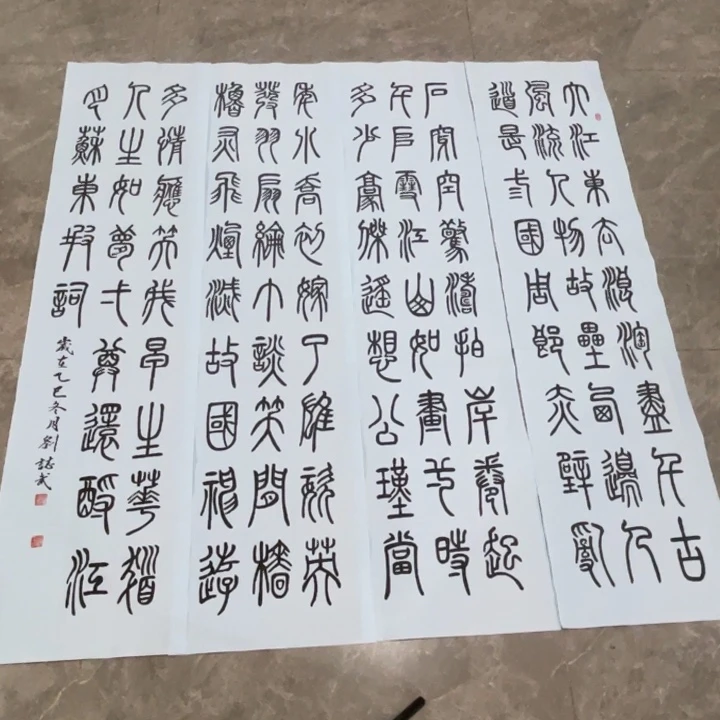 大江東去浪淘盡千古
風流人物故壘西邊人
道是弎國周郎赤壁亂
石穿空驚濤拍岸卷起
千𠂤雪江山如畫弌時
多少豪傑遙想公瑾當
年小喬初嫁了雄姿英
發羽扇綸巾談笑間檣
櫓灰飛煙滅故國神遊
多情應笑我早生華髮
人生如夢弌尊還酹江
月蘇東坡詞
歲在乙巳冬月劉誌武